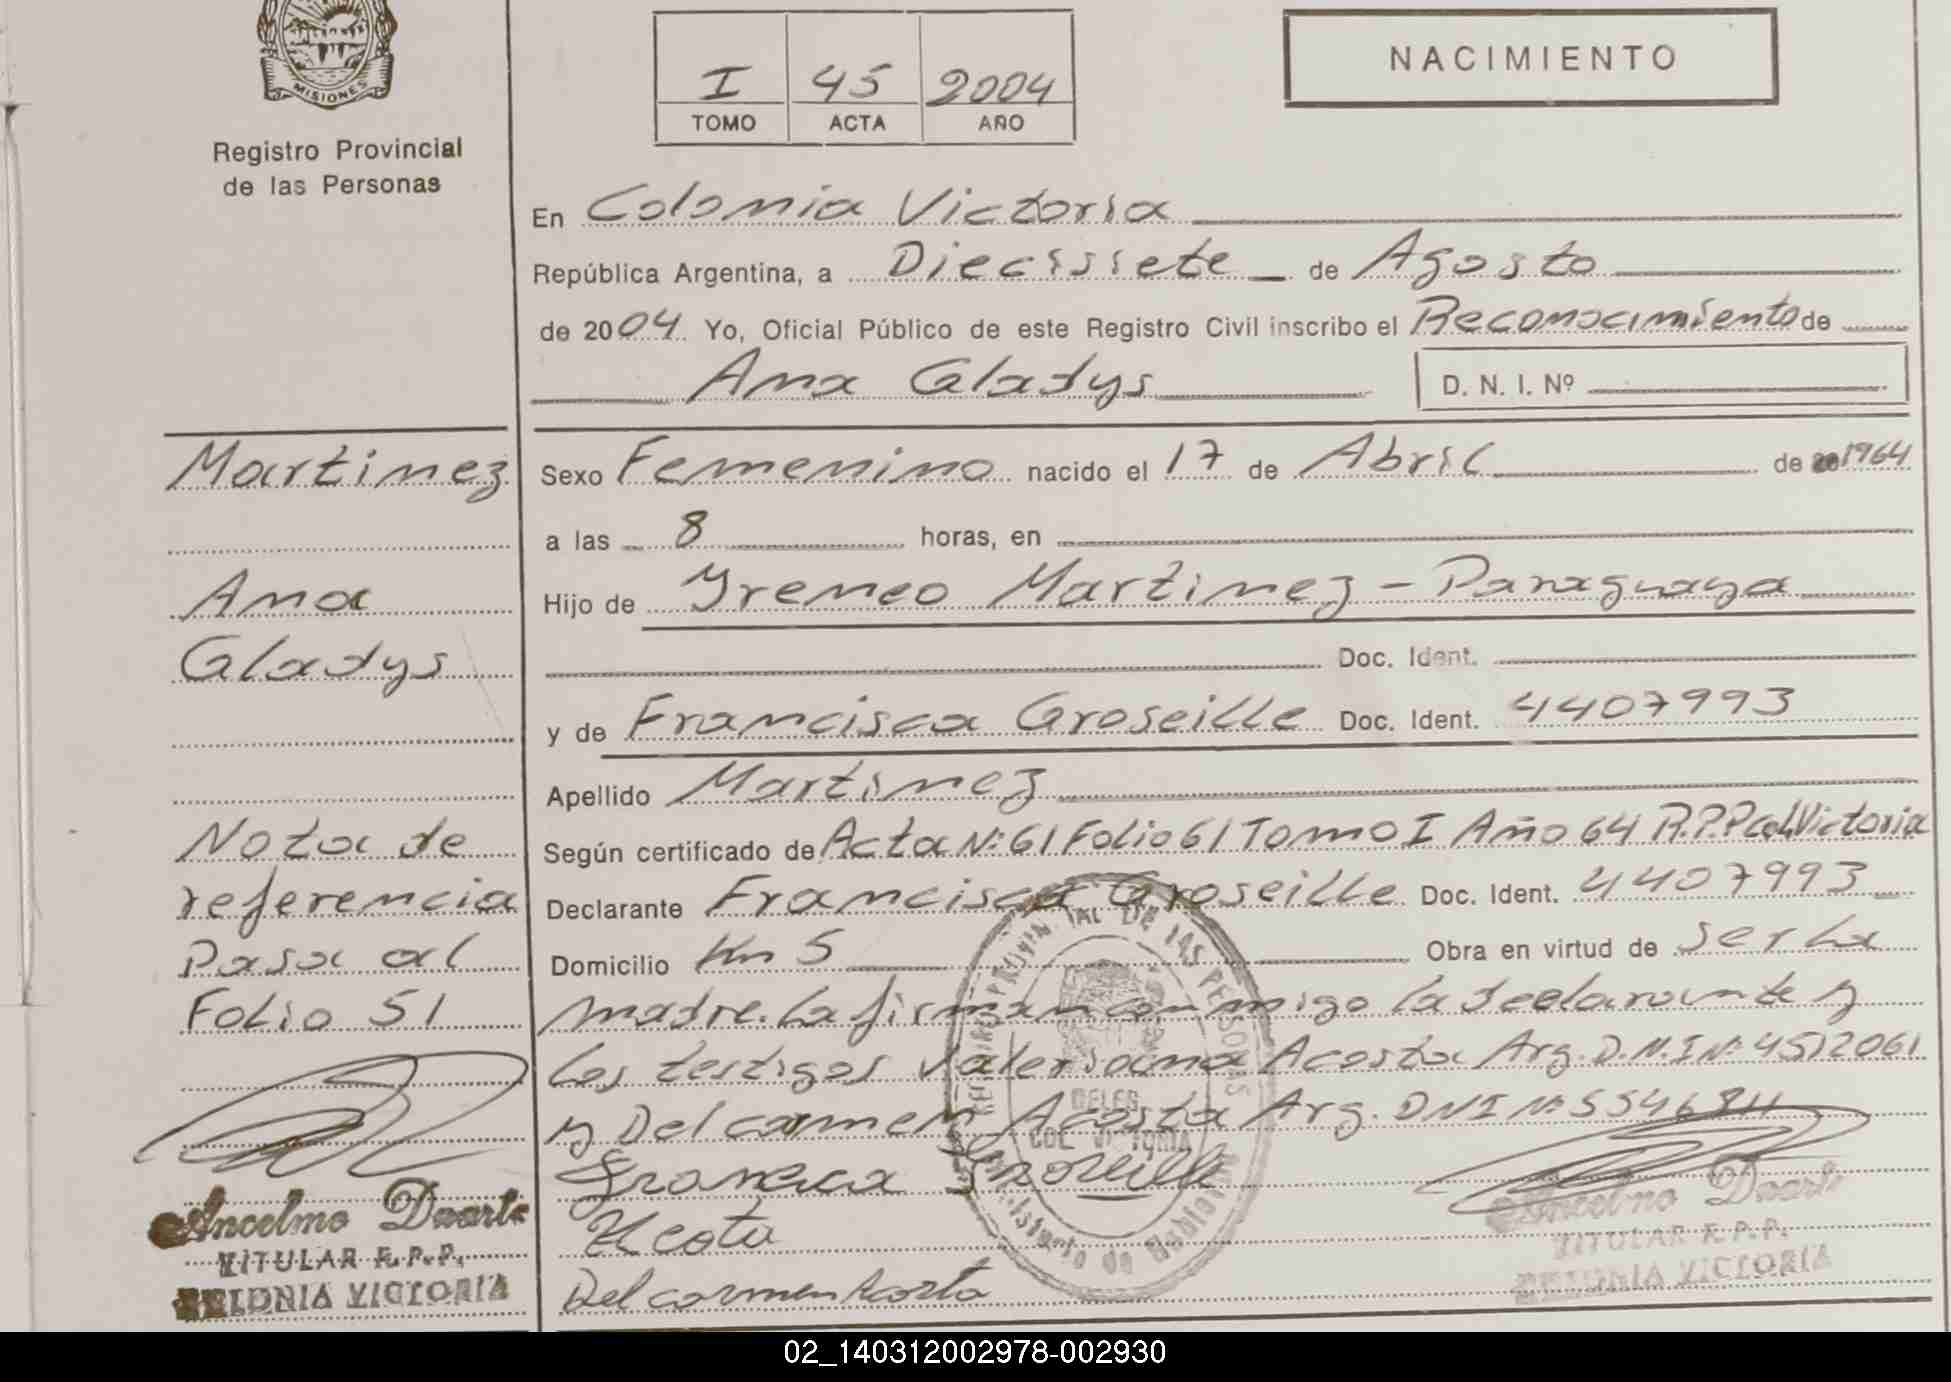 MISIONES
Registro Provincial
de las Personas
I 45 2004
TOMO ACTA AÑO
NACIMIENTO
En Colonia Victoria
República Argentina, a Diecisiete de Agosto
de 2004 Yo, Oficial Público de este Registro Civil inscribo el Reconocimiento de
Ana Gladys
D. N. I. Nº
Martinez
Ana
Gladys
Nota de
referencia
Pasa al
Folio 51
Ancelmo Duarte
TITULAR R.P.P.
COLONIA VICTORIA
Sexo Femenino nacido el 17 de Abril de 1964
a las 8 horas, en
Hijo de Yreneo Martinez - Paraguaya
Doc. Ident.
y de Francisca Groseille Doc. Ident. 4407993
Apellido Martinez
Según certificado de Acta Nº 61 Folio 61 Tomo I Año 64 R.P.P Col. Victoria
Declarante Francisca Groseille Doc. Ident. 4407993
Domicilio Km 5 Obra en virtud de ser la
madre. La firman conmigo la declarante y
los testigos Valeriana Acosta Arg. D.N.I Nº 4512061
y Del carmen Acosta Arg. DNI Nº
Groseille
Del carmen Acosta
REGISTRO PROVINCIAL DE LAS PERSONAS
DELEG.
COL. VICTORIA
Ministerio de Gobierno
Ancelmo Duarte
TITULAR R.P.P.
COLONIA VICTORIA
02_140312002978-002930